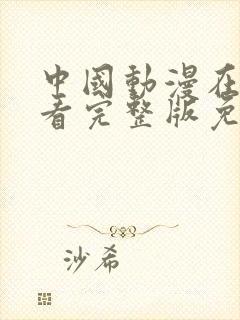 中國動漫在
看完整版免
沙希